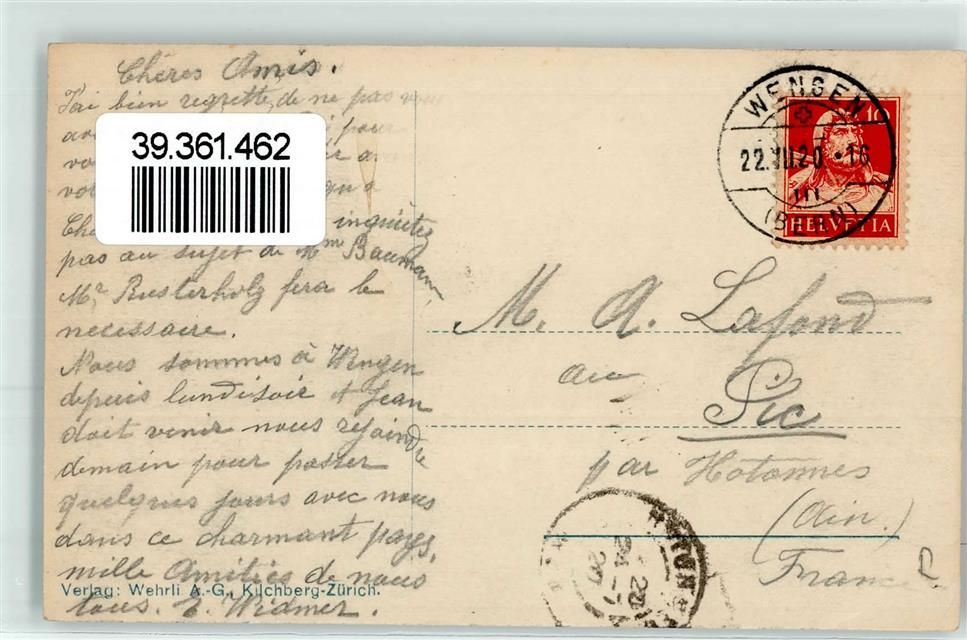 Chères Amis.
J'ai bien regretté de ne pas vous
pour
39.361.462
inquiétez
pas au sujet de Mme Baumann,
Mr Rusterholz fera le
necessaire.
Nous sommes à Wengen
depuis lundi soir et Jean
doit venir nous rejoindre
demain pour passer
quelques jours avec nous
dans ce charmant pays,
mille Amitiés de nous
Verlag: Wehrli A.-G., Kilchberg-Zürich.
tous. E. Widmer.
WENGEN
22.VII.20.-16
(BERN)
10
HELVETIA
M. A. Lafond
au
Pic
par Hotonnes
(Ain.)
France